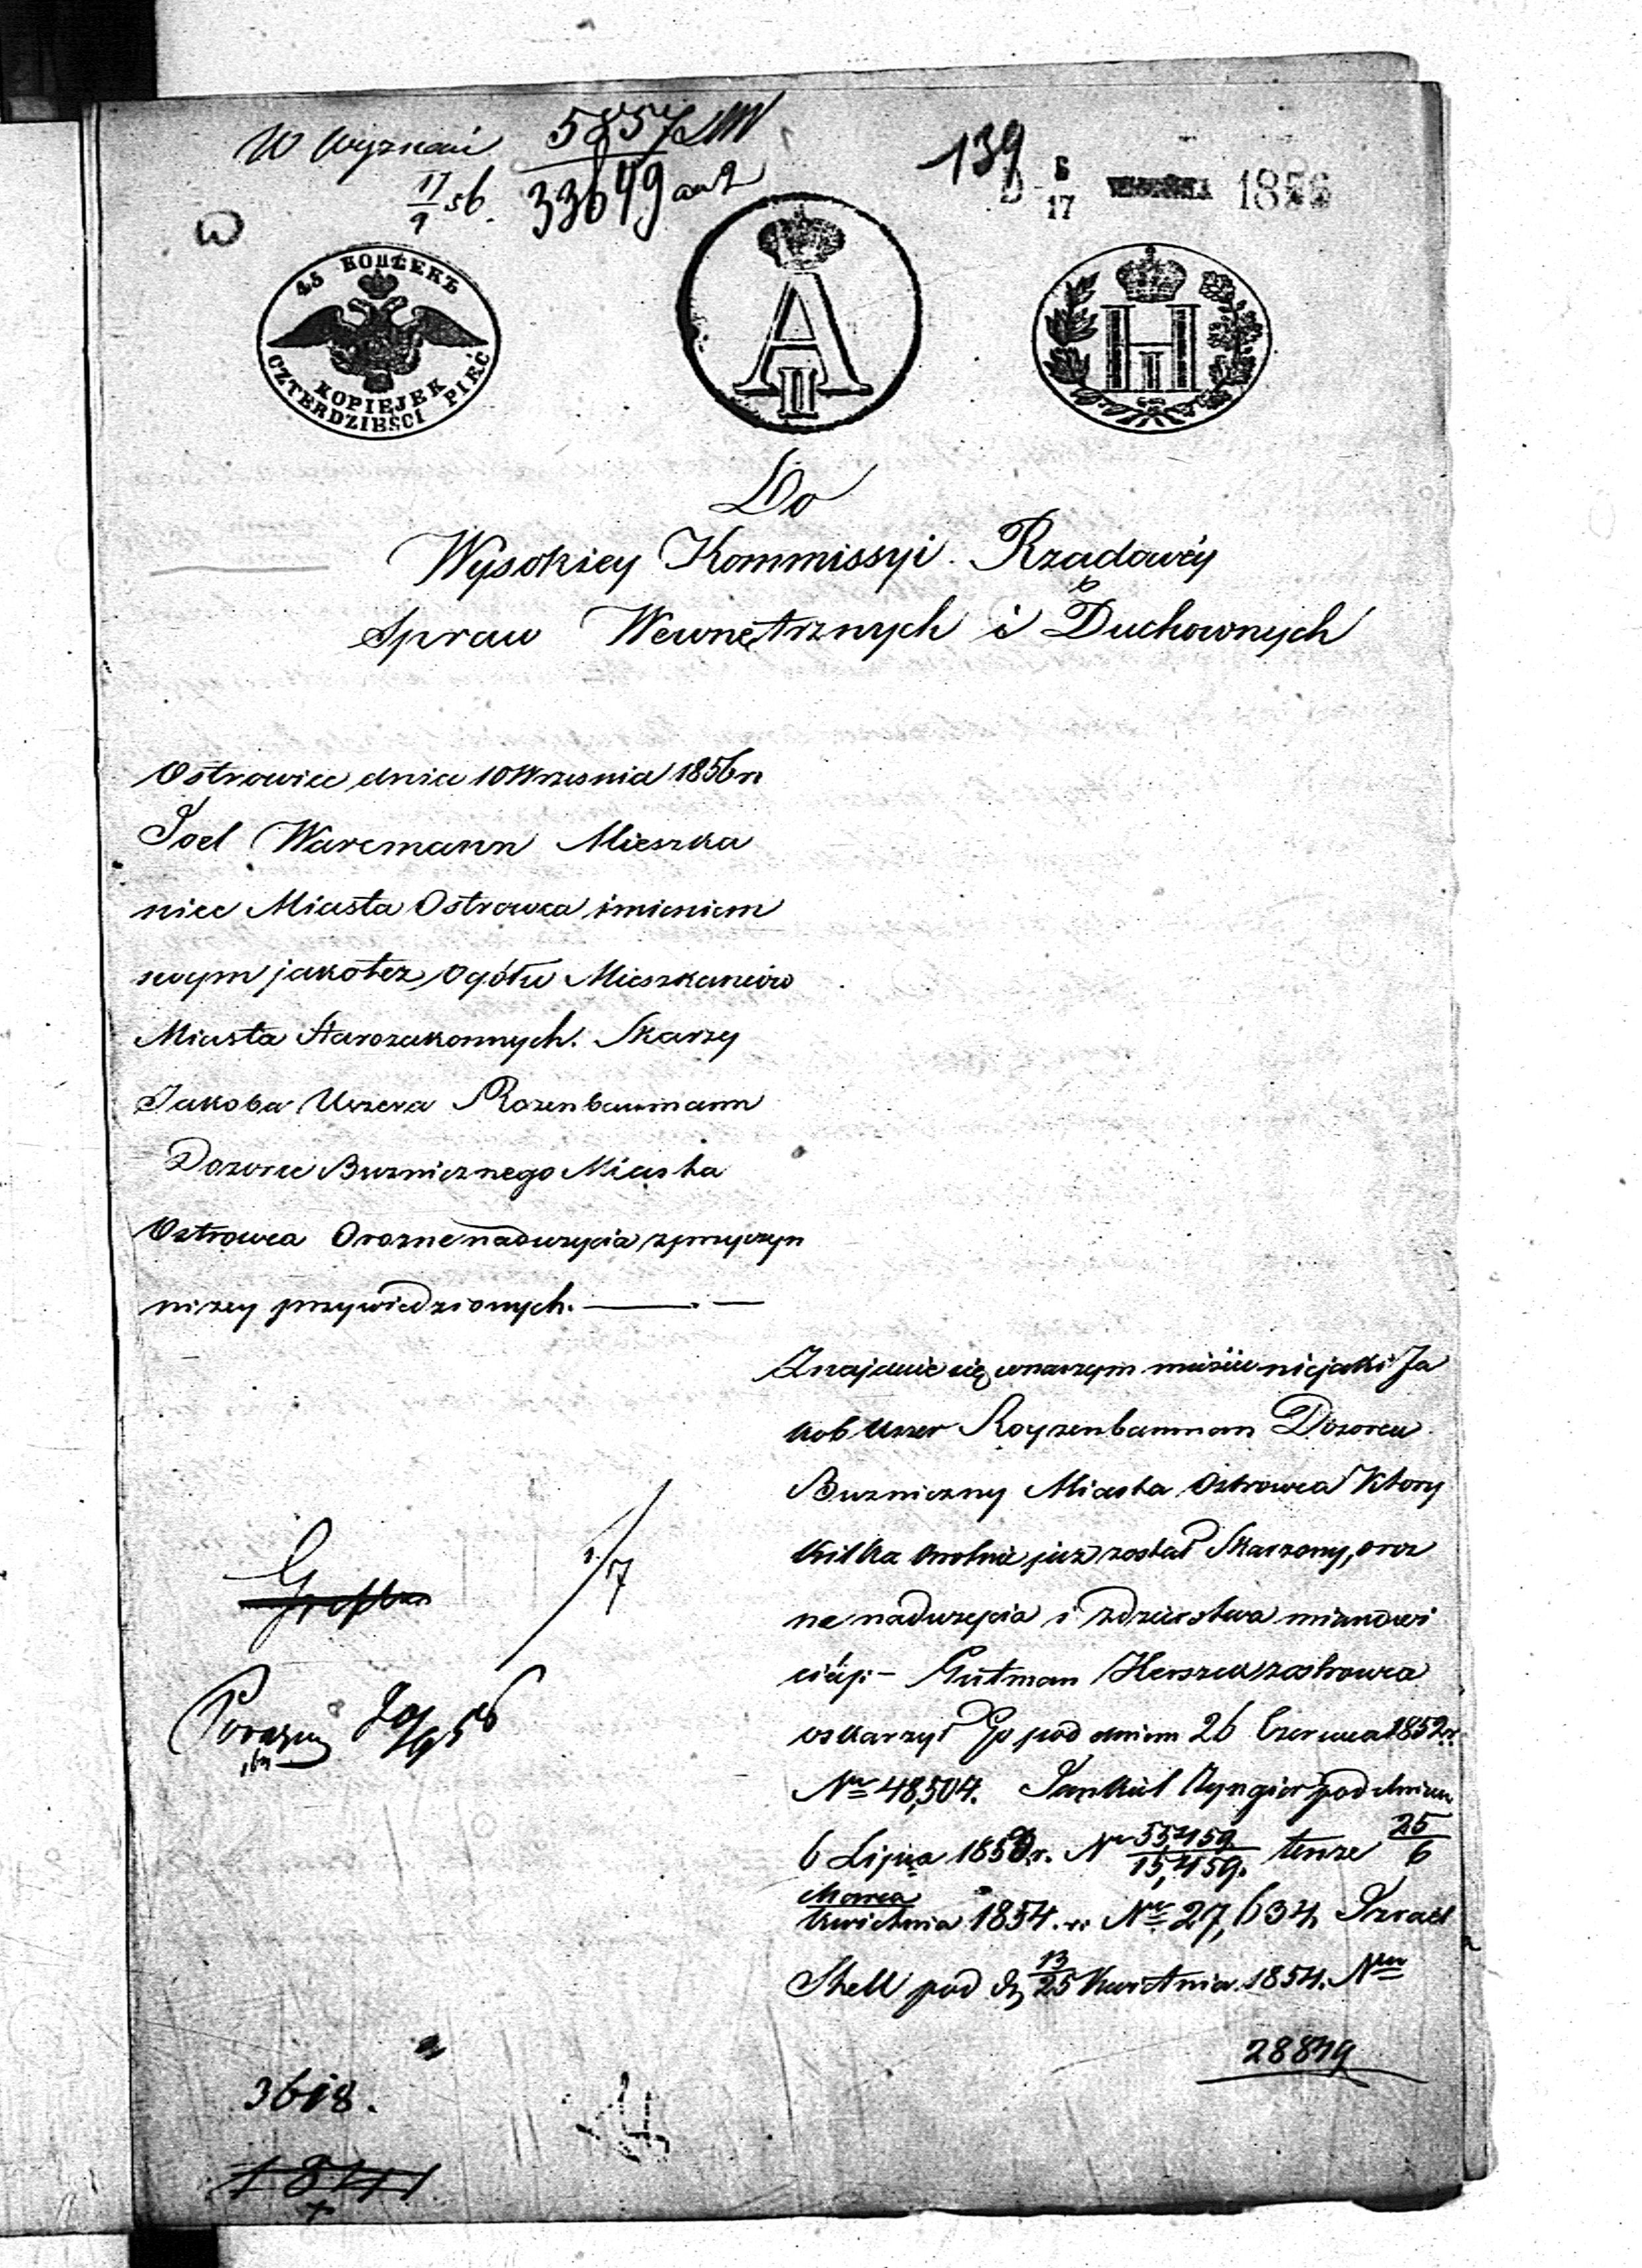 W Wyznań 5857
17/9 56. 33649
139
5/17 1856
45 КОПѢЕКЪ
KOPIEJEK
CZTERDZIEŚCI PIĘĆ
A
II
H
I
Do
Wysokiey Kommissyi Rządowéy
Spraw Wewnętrznych i Duchownych
Ostrowiec dnia 10 Wrzesnia 1856 r
Joel Waremann Mieszka
niec Miasta Ostrowca imieniem
swym jakotez Ogółu Mieszkancow
Miasta Starozakonnych. Skarzy
Jakoba Uszera Rozenbaumann
Dozorce Buznicznego Miasta
Ostrowca Orozne naduzycia zprzyczyn
nizey przywiedzionych.
Znajduie się wnaszym mieście niejaki Ja
kob Uszer Royzenbauman Dozorca
Buzniczny Miasta Ostrowca Ktory
Kilka krotnie juz został Skarzony, oroz
ne naduzycia i zdzierstwa mianowi
cie: Gutman Herszek zostrowca
oskarzył Go pod dniem 26 Czerwca 1852 r.
Nr 48,504. Jankiel Ryngier pod dniem
6 Lipca 185 r. Nr 15,459. tenze 25/6
Marca/Kwietnia 1854. r. Nr 27,634 Izrael
Shell pod d. 13/25 Kwietnia 1854. Nr
28849
3618.